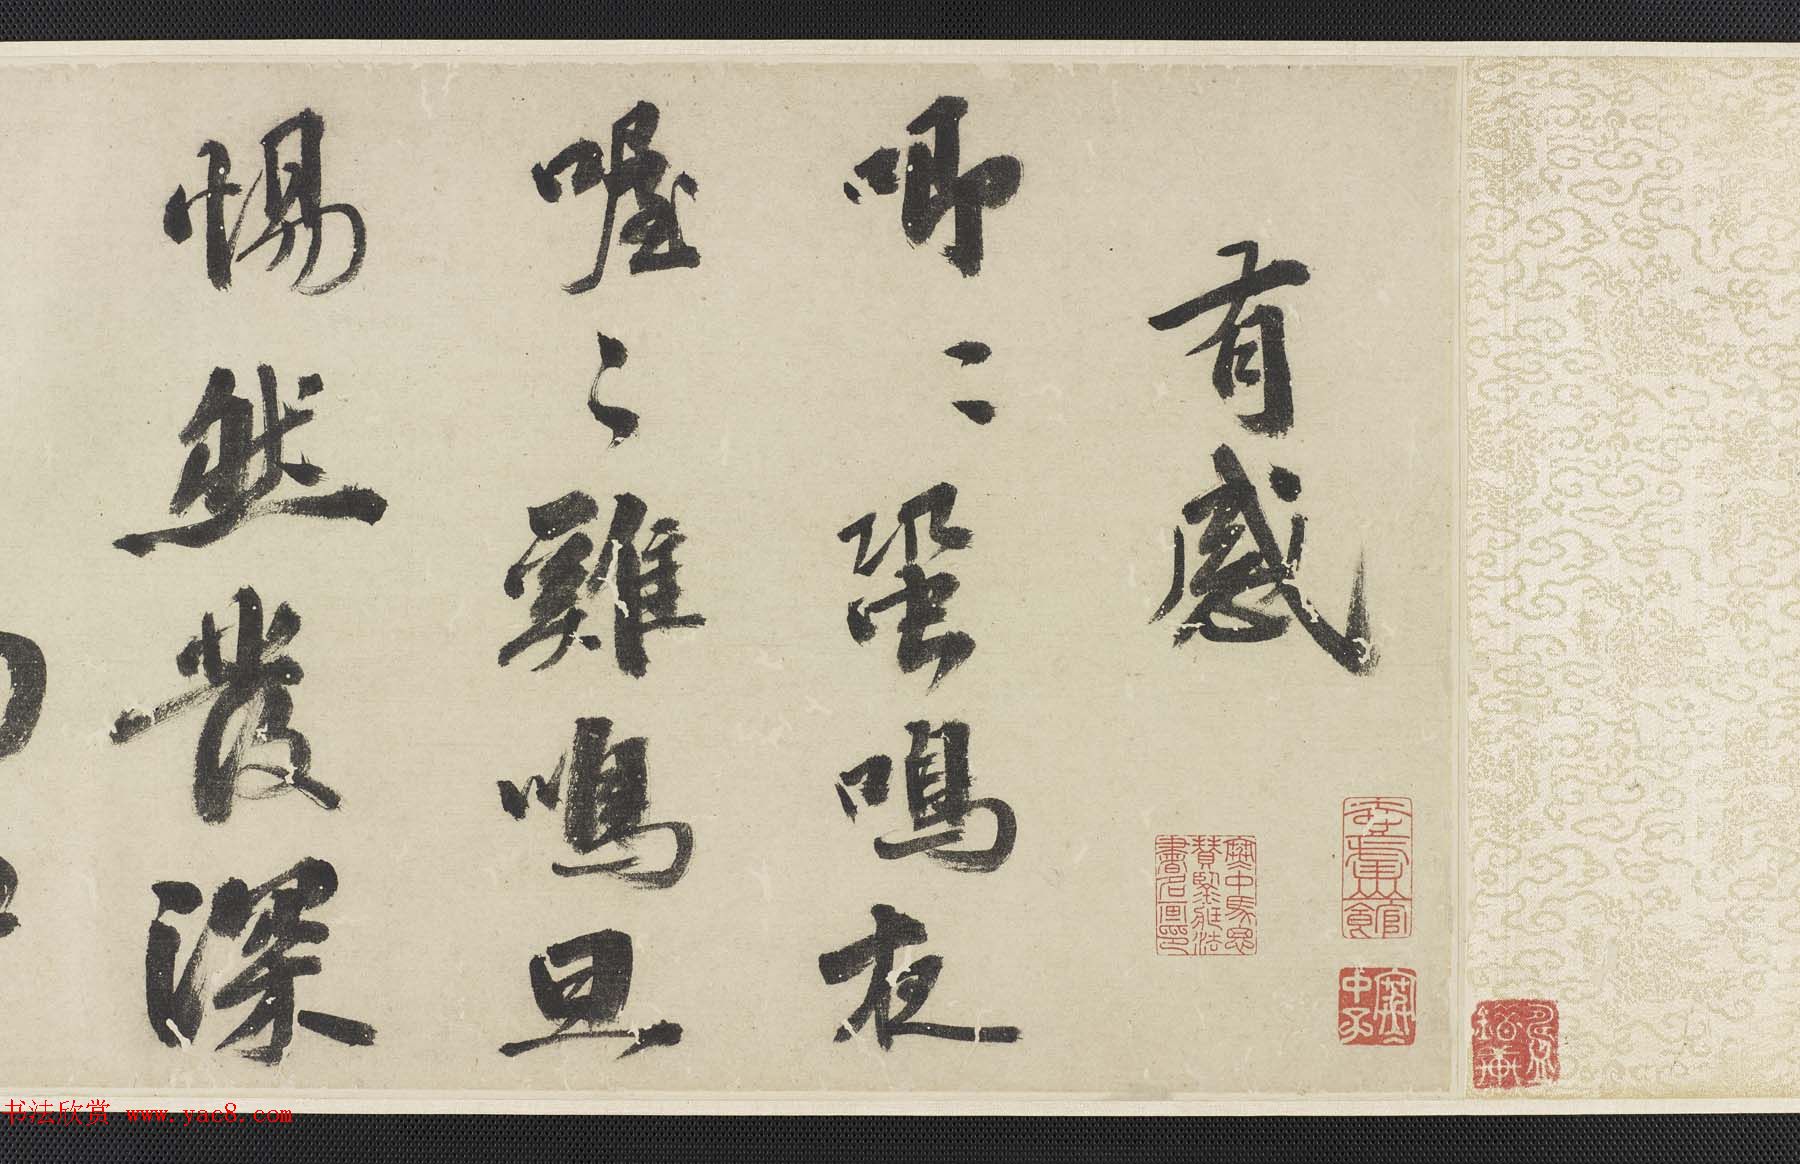 有感
唧〻蛩鳴夜
喔〻雞鳴旦
惕然發深
書法欣赏 www.yac8.com